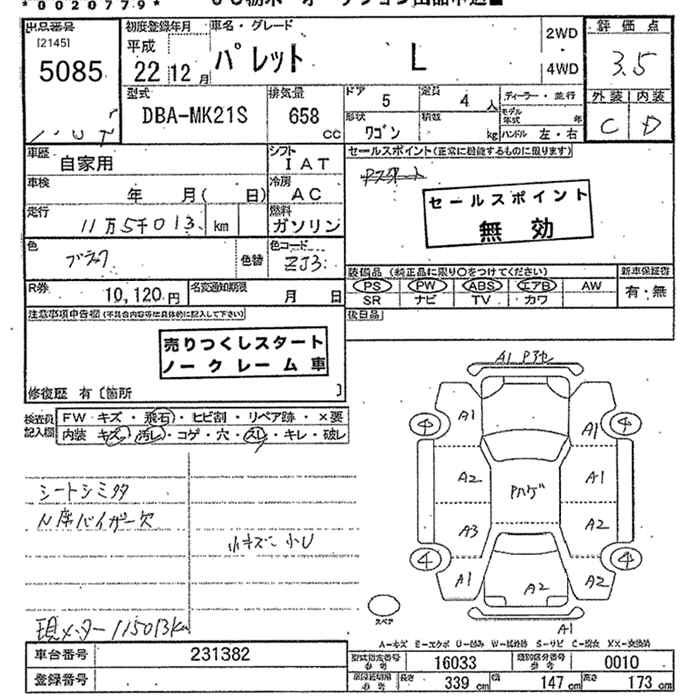 *0020779*
出品番号
[2145]
5085
初度登録年月
平成
22 12 月
車名・グレード
パレット L
2WD
・
4WD
評価点
3.5
外装 内装
C D
型式
DBA-MK21S
排気量
658
CC
ドア
5
定員
4 人
ディーラー・並行
形状
ワゴン
積載
kg
モデル年式
年
ハンドル 左・右
車歴
自家用
シフト
IAT
車検
年 月( 日)
冷房
AC
走行
11万5千013 km
燃料
ガソリン
色
ブラック
色替
色コード
ZJ3
R券
10,120円
名変通知期限
月 日
セールスポイント(正常に機能するものに限ります)
セールスポイント
無効
装備品(純正品に限り〇をつけてください)
PS PW ABS エアB AW
SR ナビ TV カワ
新車保証書
有・無
後日品
注意事項申告欄(不具合内容等は具体的に記入して下さい)
売りつくしスタート
ノークレーム車
修復歴 有〔箇所 〕
検査員
記入欄
FW キズ・飛石・ヒビ割・リペア跡・×要
内装 キズ・汚レ・コゲ・穴・スレ・キレ・破レ
シートシミ多
N席バイザー欠
小キズ 小U
現メーター 115013km
A1
A1 A1
A2 A1
A3 A2
A1 A2 A2
A1
4 4
4 4
スペア
A-キズ E-エクボ U-凹み W-補修跡 S-サビ C-腐食 XX-交換済
車台番号
231382
登録番号
型式指定番号
参考
16033
類別区分番号
参考
0010
長さ 339 cm
巾 147 cm
高さ 173 cm